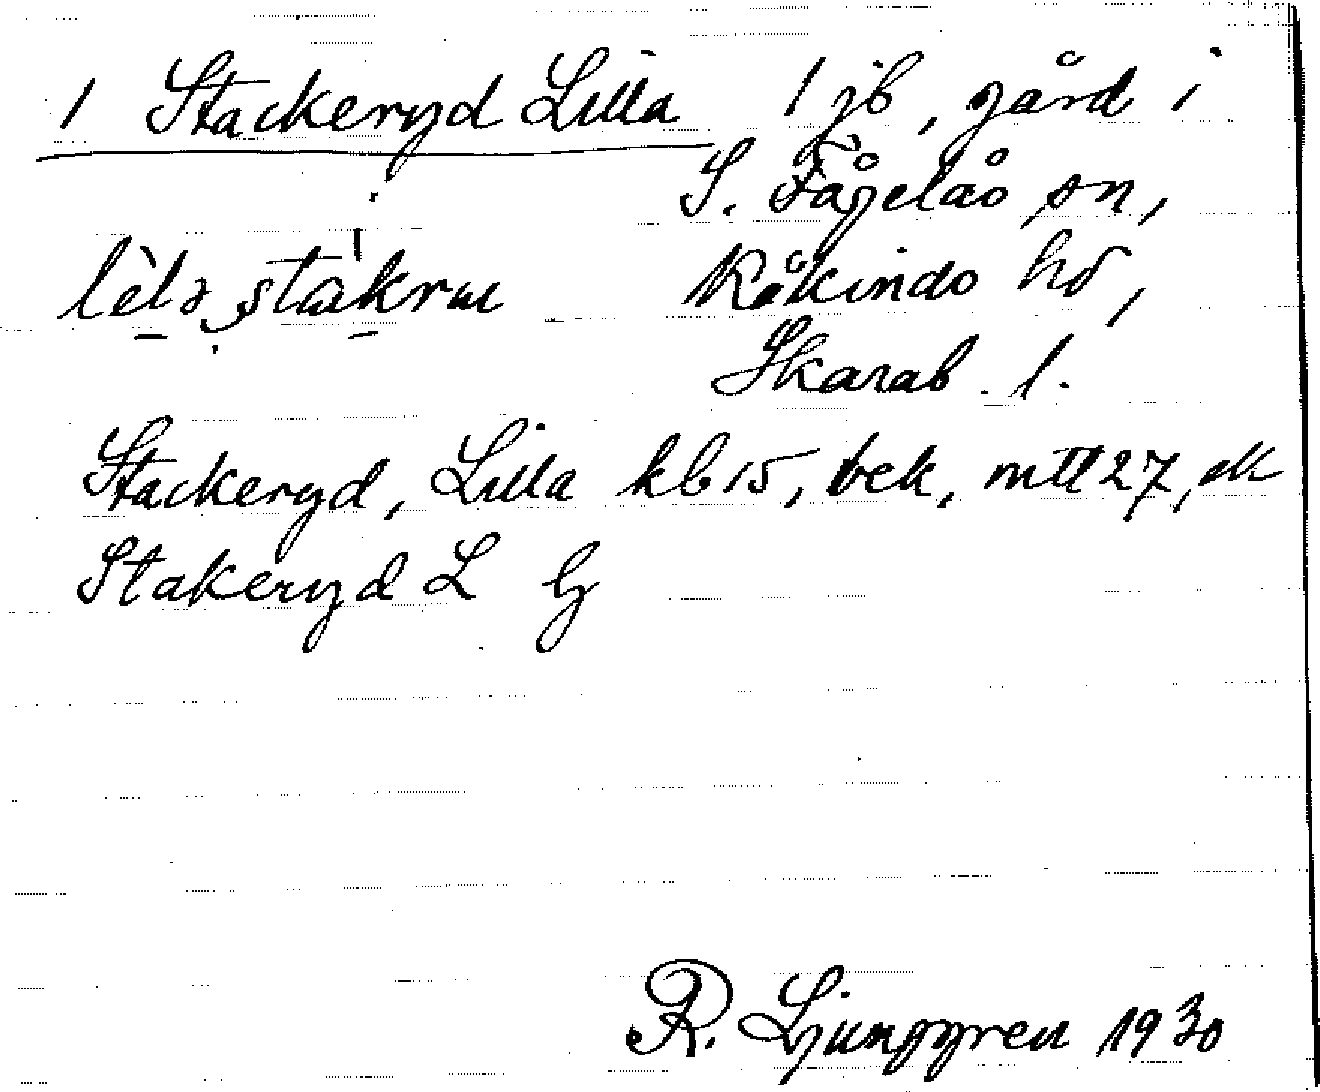 1 Stackeryd Lilla 1 jb, gård i
S. Fågelås sn,
Kåkinds hd,
Skarab. l.
Stackeryd, Lilla kb 15, bek, mtl 27, ek
Stakeryd L G
R. Ljunggren 1930